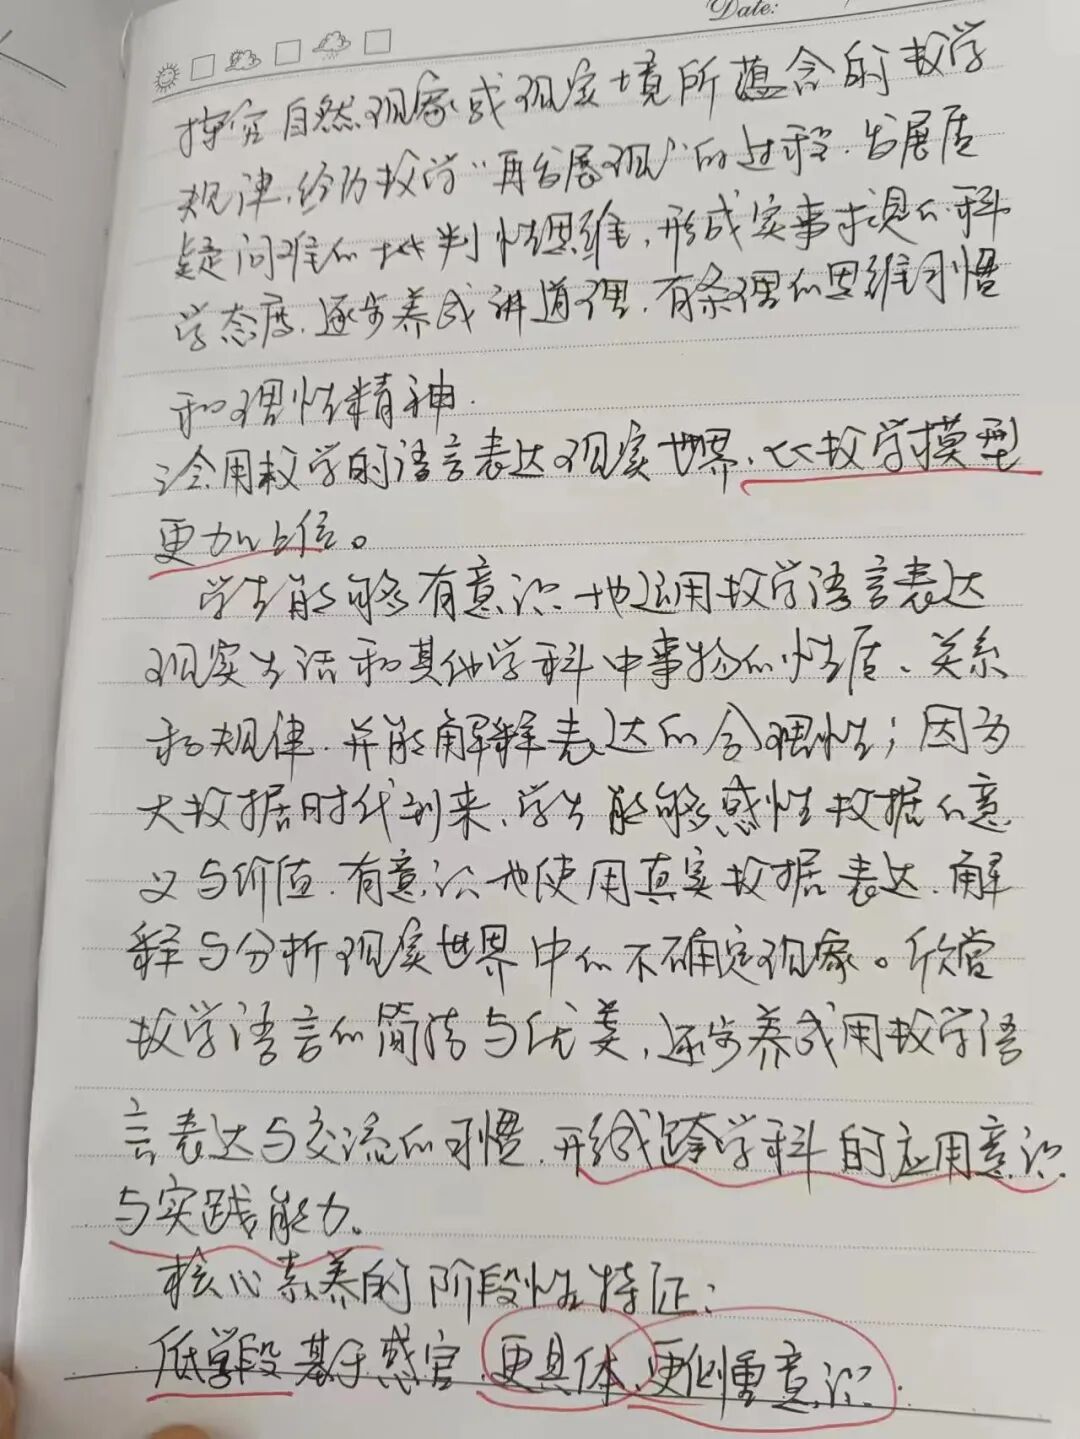 Date:
探究自然现象或现实境所蕴含的数学
规律,经历数学“再发展现”的过程.发展质
疑问难的批判性思维,形成实事求是的科
学态度,逐步养成讲道理,有条理的思维习惯
和理性精神.
会用数学的语言表达现实世界,比数学模型
更加上位。
学生能够有意识地运用数学语言表达
现实生活和其他学科中事物的性质、关系
和规律.并能解释表达的合理性;因为
大数据时代到来,学生能够感性数据的意
义与价值.有意识地使用真实数据表达.解
释与分析现实世界中的不确定现象。欣赏
数学语言的简洁与优美,逐步养成用数学语
言表达与交流的习惯,形成跨学科的应用意识
与实践能力。
核心素养的阶段性特征:
低学段基于感官.更具体,更侧重意识.